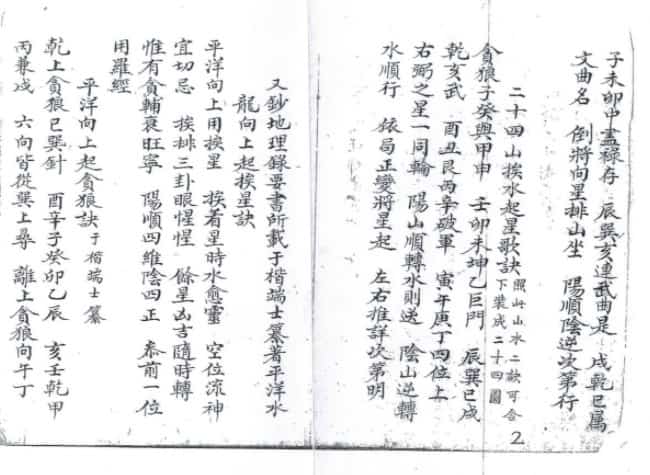 子未卯中盡祿存　辰巽亥連武曲是　戌乾巳屬
文曲名　倒將向星排山坐　陽順陰逆次第行
二十四山挨水起星歌訣 照此山水二訣可合下裝成二十四圖
貪狼子癸與甲申　壬卯未坤乙巨門　辰巽巳戌
乾亥武　酉丑艮丙辛破軍　寅午庚丁四位上
右弼之星一同輪　陽山順轉水則逆　陰山逆轉
水順行　依局正變將星起　左右推詳次第明
2
又鈔地理錄要書所載于楷端士纂著平洋水
龍向上起挨星訣
平洋向上用挨星　挨着星時水愈靈　空位流神
宜切忌　挨排三卦眼惺惺　餘星凶吉隨時轉
惟有貪輔衰旺寧　陽順四維陰四正　泰前一位
用羅經
平洋向上起貪狼訣 于楷端士纂
乾上貪狼巳巽針　酉辛子癸卯乙辰　亥壬乾甲
丙兼戌　六向皆從巽上尋　離上貪狼向午丁